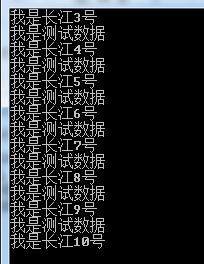 我是长江3号
我是测试数据
我是长江4号
我是测试数据
我是长江5号
我是测试数据
我是长江6号
我是测试数据
我是长江7号
我是测试数据
我是长江8号
我是测试数据
我是长江9号
我是测试数据
我是长江10号